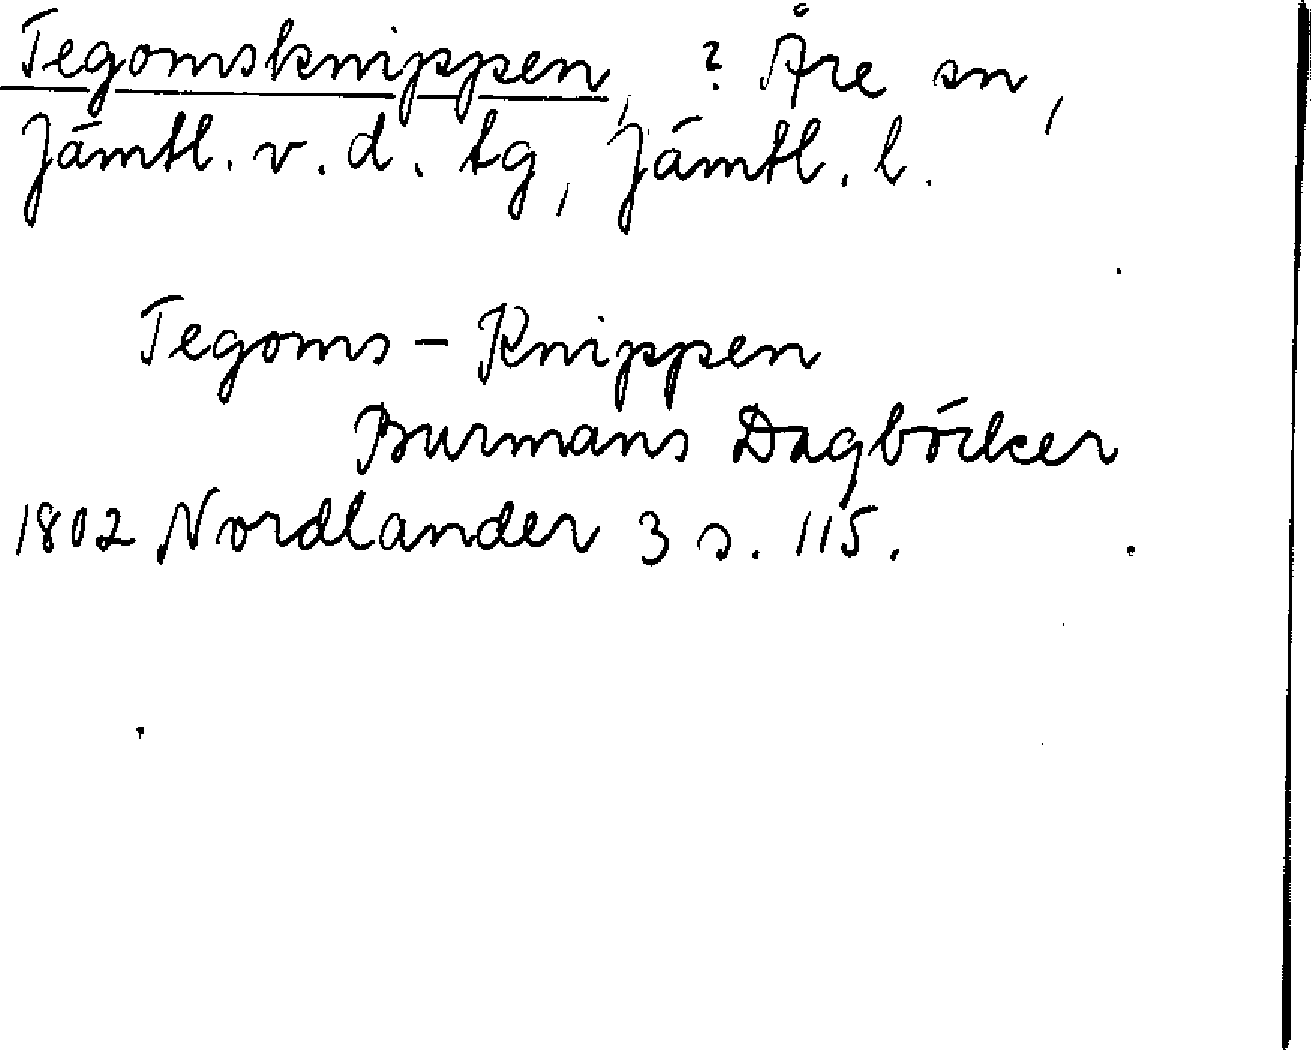 Tegomsknippen, ? Åre sn,
Jämtl. v. d. tg, Jämtl. l.
Tegoms - Knippen
Burmans Dagböcker
1802 Nordlander 3 s. 115.